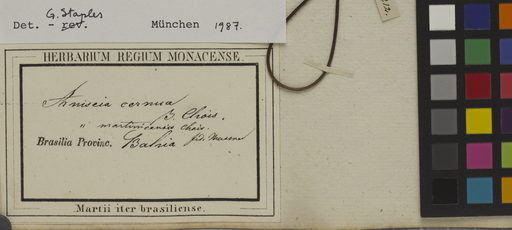 G. Staples
Det. - rev. München 1987.
HERBARIUM REGIUM MONACENSE.
Aniseia cernua
β. Chois.
" martinicensis Chois.
Brasilia Provinc. Bahia fid. Meissner
Martii iter brasiliense.